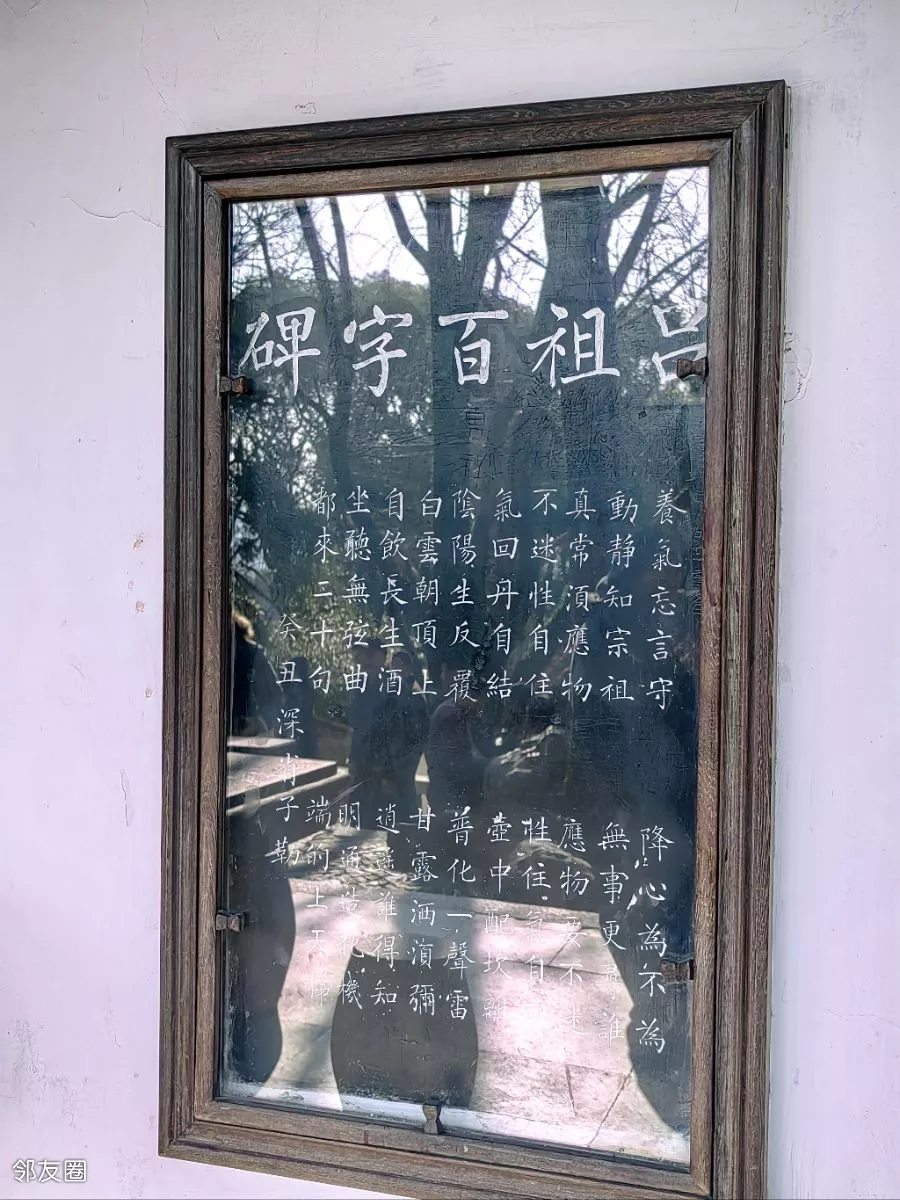 吕祖百字碑
養氣忘言守 降心為不為
動靜知宗祖 無事更尋誰
真常須應物 應物要不迷
不迷性自住 性住氣自
氣回丹自結 壺中配坎離
陰陽生反覆 普化一聲雷
白雲朝頂上 甘露洒湏彌
自飲長生酒 逍遥誰得知
坐聽無弦曲 明通造化機
都來二十句 端的上天梯
癸丑深省子勒
邻友圈